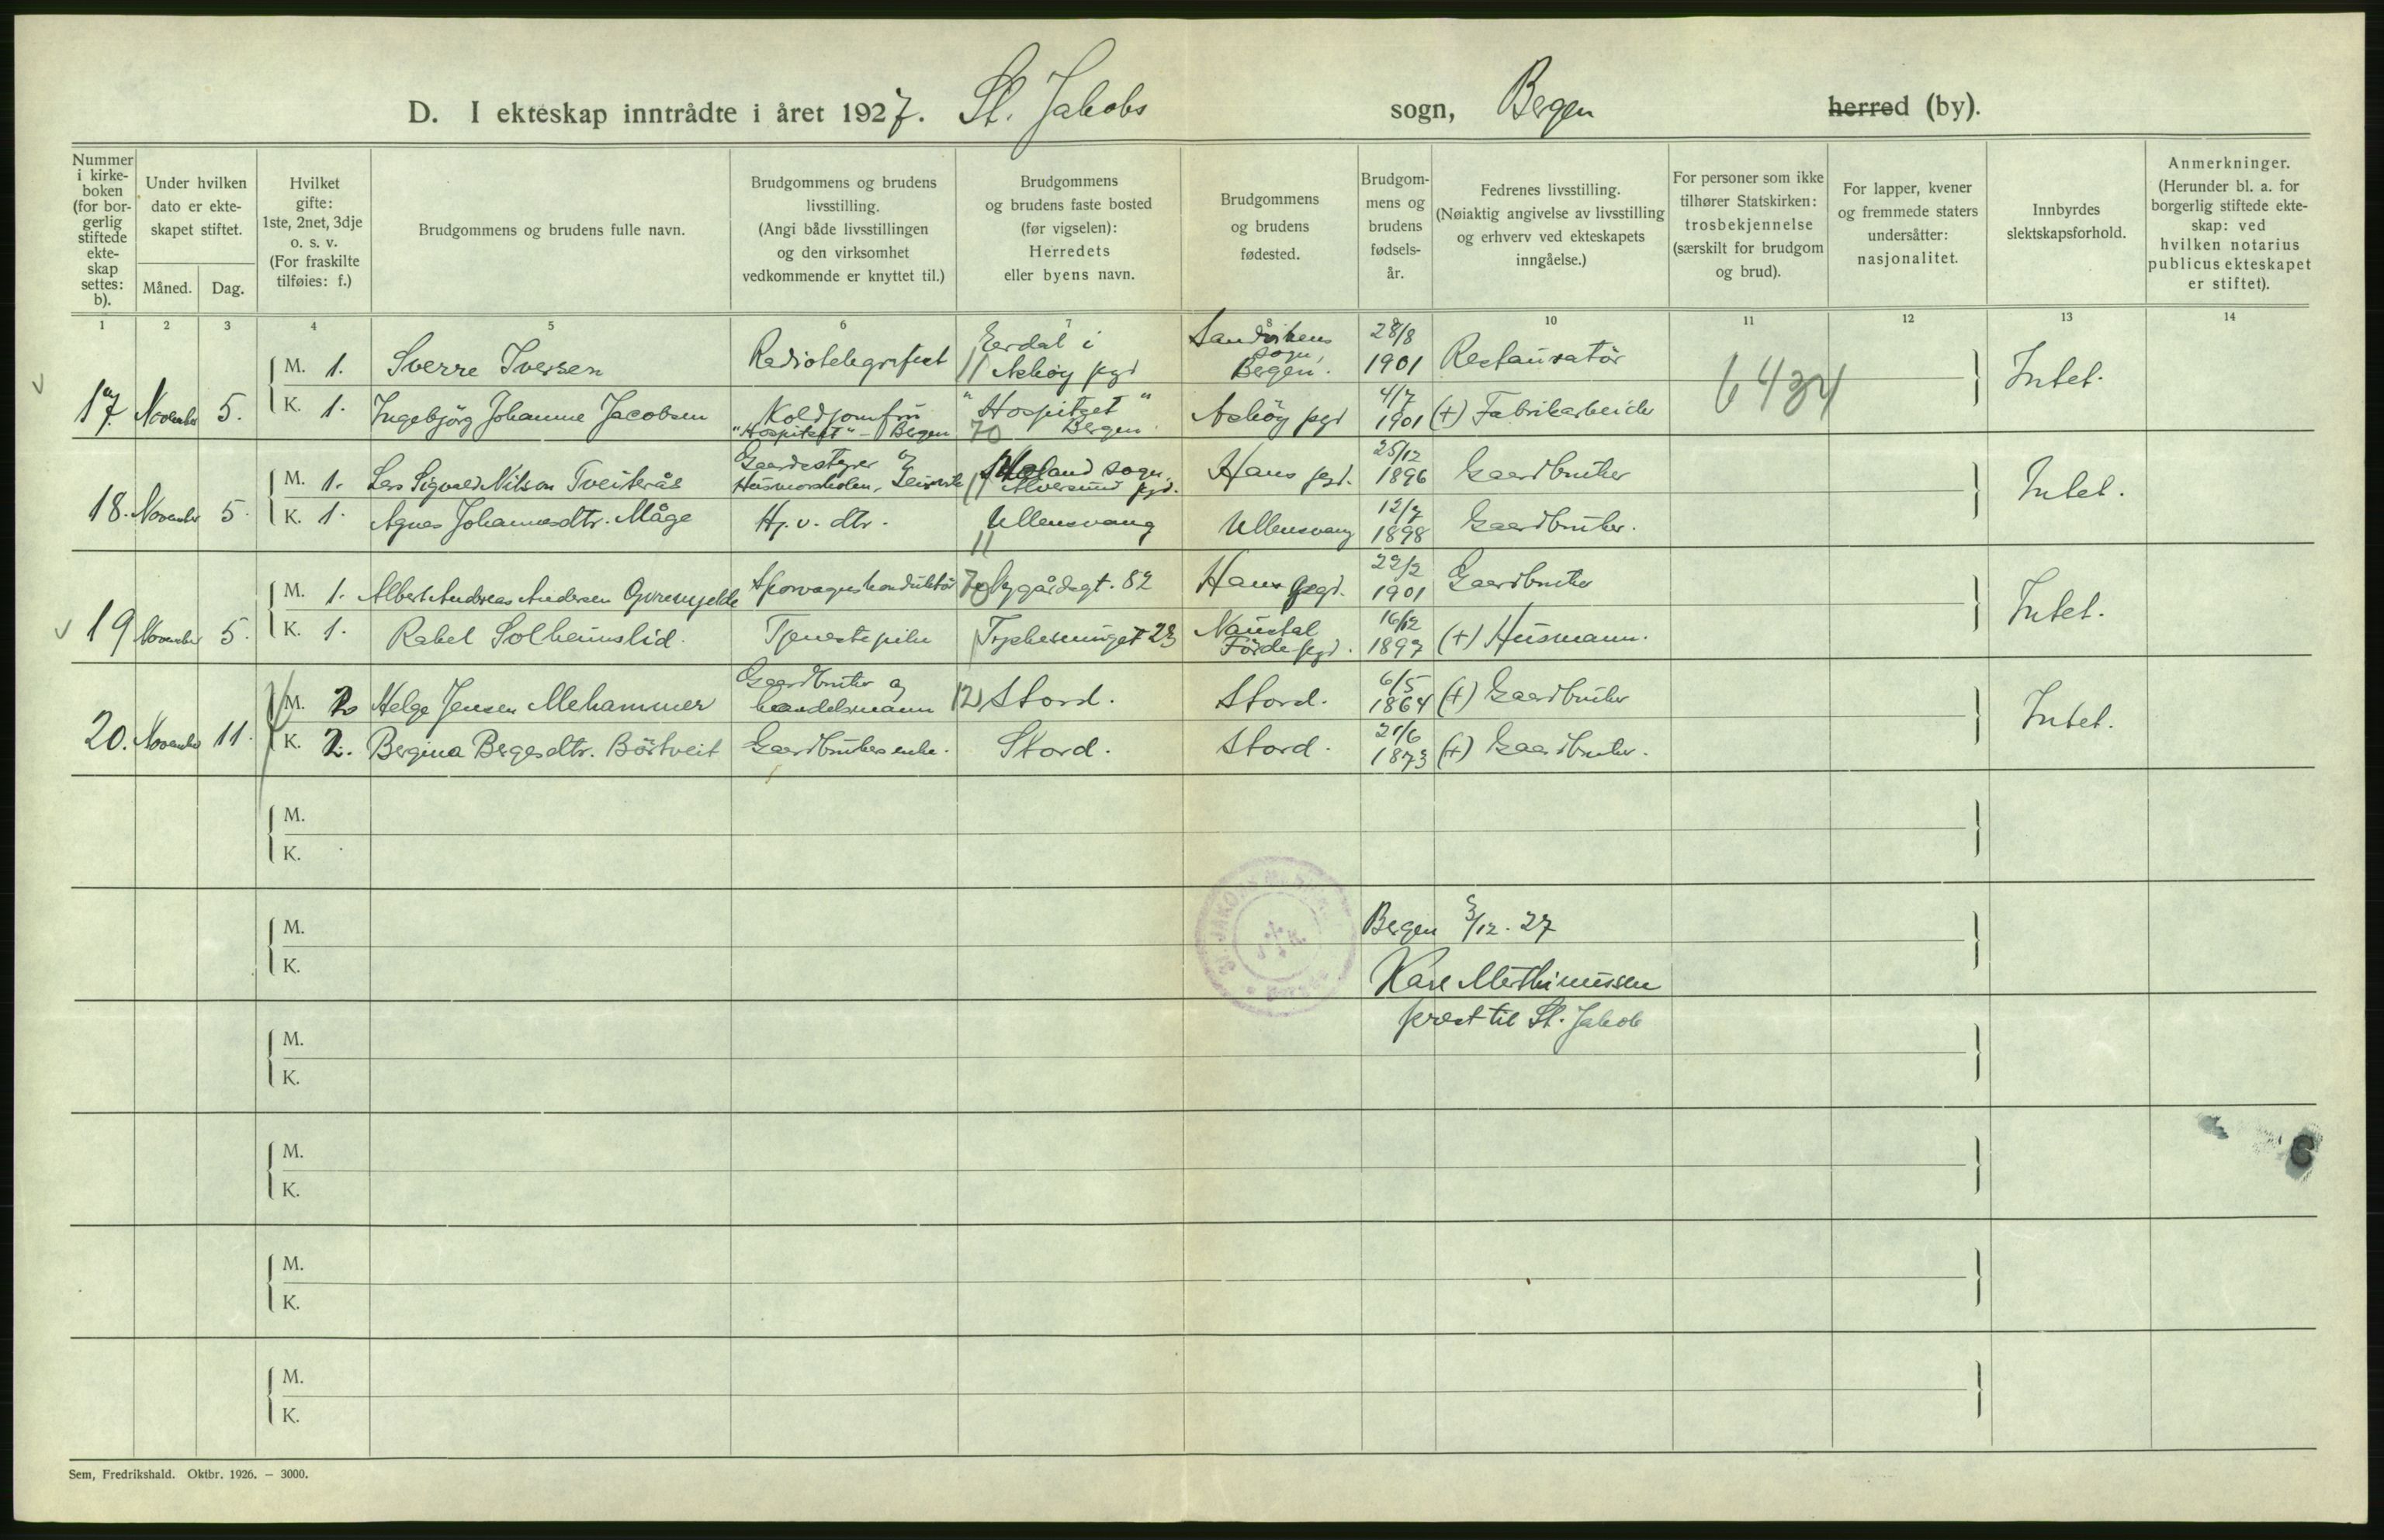 D. I ekteskap inntrådte i året 1927. St. Jakobs sogn, Bergen herred (by).
Nummer i kirke- boken (for bor- gerlig stiftede ekte- skap settes: b).
Under hvilken dato er ekte- skapet stiftet.
Måned. Dag.
Hvilket gifte: 1ste, 2net, 3dje o. s. v. (For fraskilte tilføies: f.)
Brudgommens og brudens fulle navn.
Brudgommens og brudens livsstilling. (Angi både livsstillingen og den virksomhet vedkommende er knyttet til.)
Brudgommens og brudens faste bosted (før vigselen): Herredets eller byens navn.
Brudgommens og brudens fødested.
Brudgom- mens og brudens fødsels- år.
Fedrenes livsstilling. (Nøiaktig angivelse av livsstilling og erhverv ved ekteskapets inngåelse.)
For personer som ikke tilhører Statskirken: trosbekjennelse (særskilt for brudgom og brud).
For lapper, kvener og fremmede staters undersåtter: nasjonalitet.
Innbyrdes slektskapsforhold.
Anmerkninger. (Herunder bl. a. for borgerlig stiftede ekte- skap: ved hvilken notarius publicus ekteskapet er stiftet).
1 2 3 4 5 6 7 8 10 11 12 13 14
17. November 5.
M. 1. Sverre Iversen Radiotelegrafist Eerdal i Askøy pgd 11 Sandvikens sogn, Bergen. 28/8 1901 Restauratör 6434 Intet.
K. 1. Ingebjörg Johanne Jacobsen Koldjomfru "Hospitset" - Bergen "Hospitset" Bergen 70 Asköy pgd 4/7 1901 (+) Fabrikarbeider
18. November 5.
M. 1. Lars Sigvald Nilsen Tveiterås Gaardsstyrer og Husmorskolen, sogn, Alversund pgd. 11 Haus pgd. 25/12 1896 Gaardbruker Intet.
K. 1. Agnes Johannesdtr. Måge Hj. v. dtr. Ullensvang 11 Ullensvang 12/7 1898 Gaardbruker.
19 November 5.
M. 1. Albert Andreas Andersen Sporvognskonduktör 70 Nygårdsgt. 82 Haus pgd. 22/2 1901 Gaardbruker Intet.
K. 1. Rakel Solheimslid. Tjenestepike 23 Naustal Förde pgd. 16/12 1897 (+) Husmann.
20. November 11.
M. 2 Helge Jensen Mehammer Gaardbruker og handelsmann 12 Stord. Stord. 6/5 1864 (+) Gaardbruker Intet.
K. 2. Bergina Bergesdtr. Börtveit Gaardbrukerenke. Stord. Stord. 21/6 1873 (+) Gaardbruker.
M.
K.
M.
K.
Bergen 3/12. 27
prest til St. Jakob
M.
K.
M.
K.
M.
K.
M.
K.
Sem, Fredrikshald. Oktbr. 1926. — 3000.